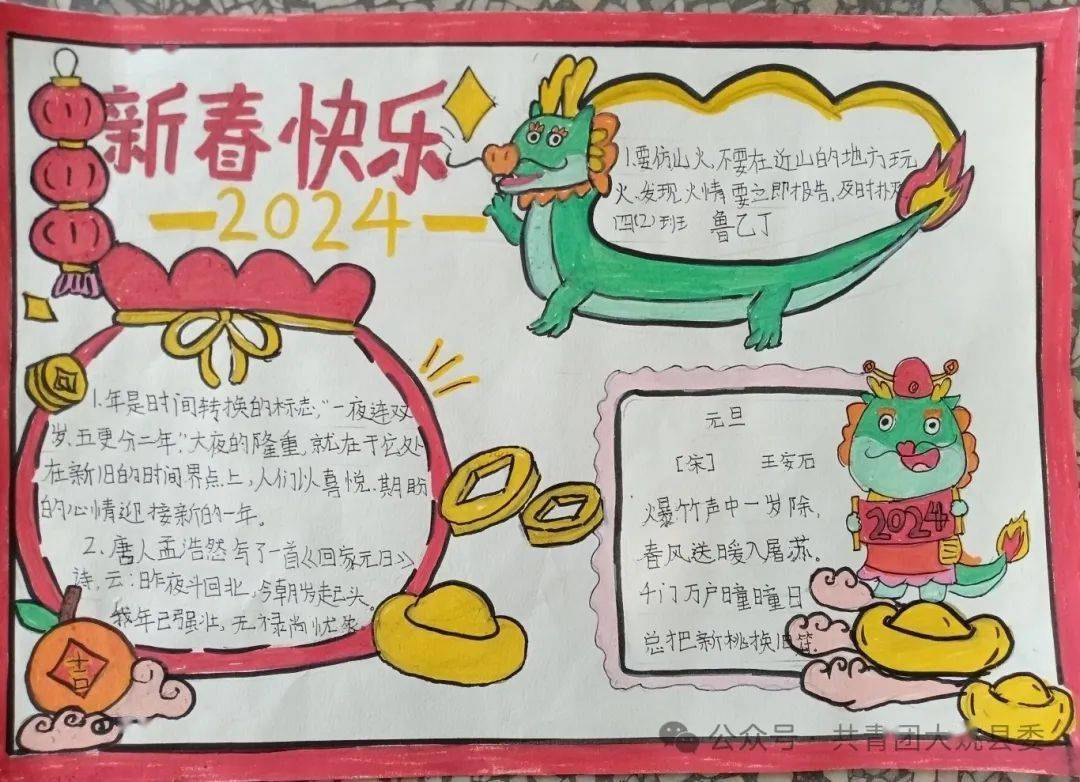 新春快乐
2024
1.要仿山火,不要在近山的地方玩
火、发现火情要立即报告,及时扑灭
四(2)班 鲁乙丁
1.年是时间转换的标志,"一夜连双
岁,五更分二年."大夜的隆重,就在于它处
在新旧的时间界点上,人们以喜悦.期盼
的心情迎接新的一年。
2、唐人孟浩然写了一首《回家元日》
诗,云:昨夜斗回北,今朝岁起头。
我年已强壮,无禄尚忧农
吉
元旦
[宋] 王安石
爆竹声中一岁除,
春风送暖入屠苏。
千门万户曈曈日
总把新桃换旧符.
2024
公众号·共青团大姚县委